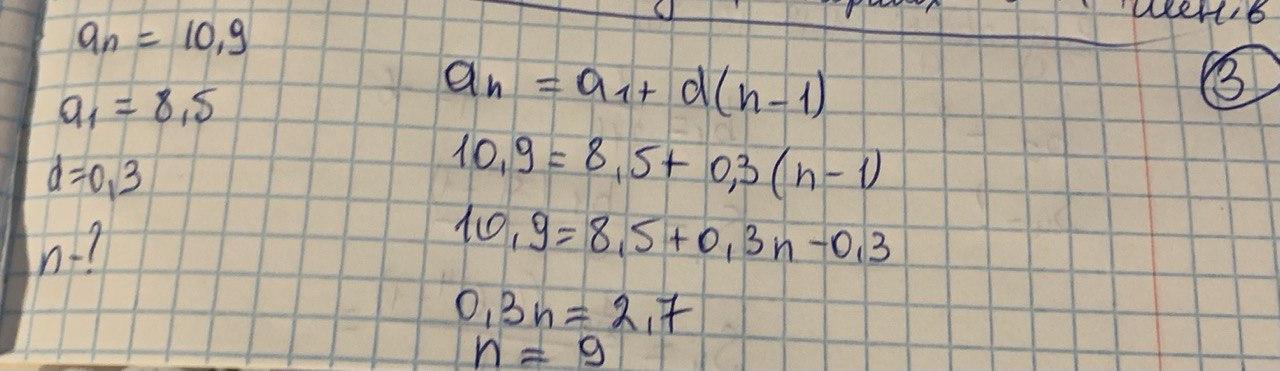 членів
③
aₙ = 10,9
a₁ = 8,5
d=0,3
n-?
aₙ = a₁+ d(n-1)
10,9= 8,5+ 0,3(n-1)
10,9=8,5+0,3n-0,3
0,3n=2,7
n = 9